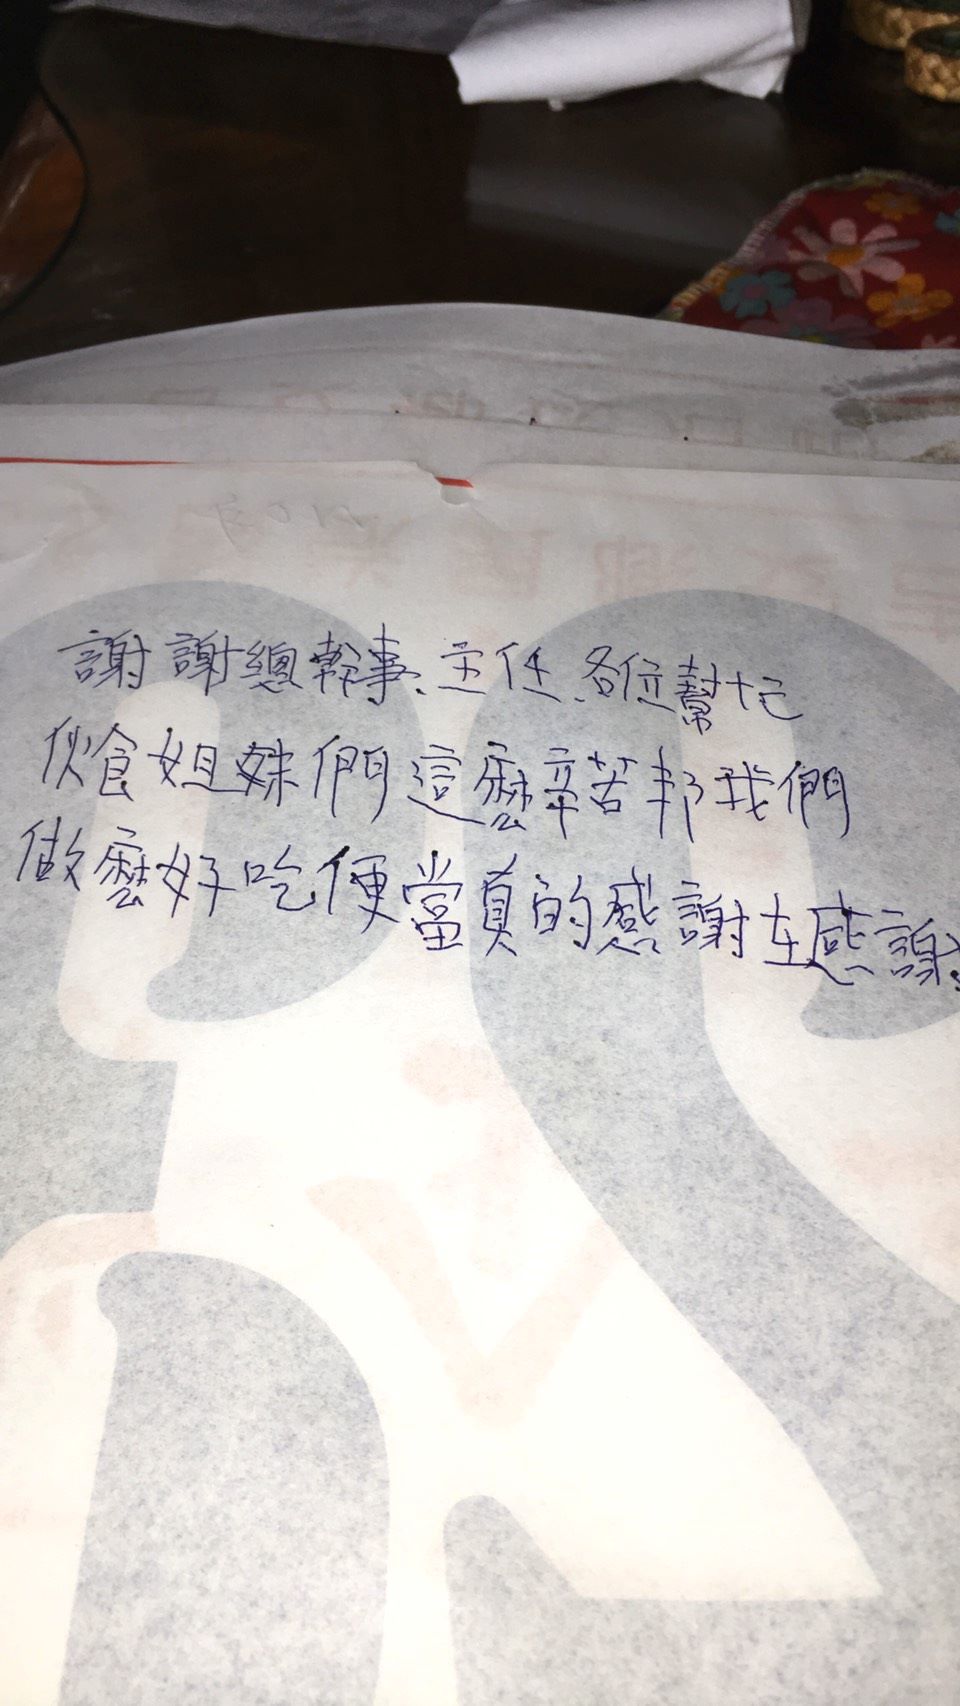 謝謝總幹事、主任、各位幫忙
伙食姐妹們這麼辛苦邦我們
做麼好吃便當真的感謝在感謝